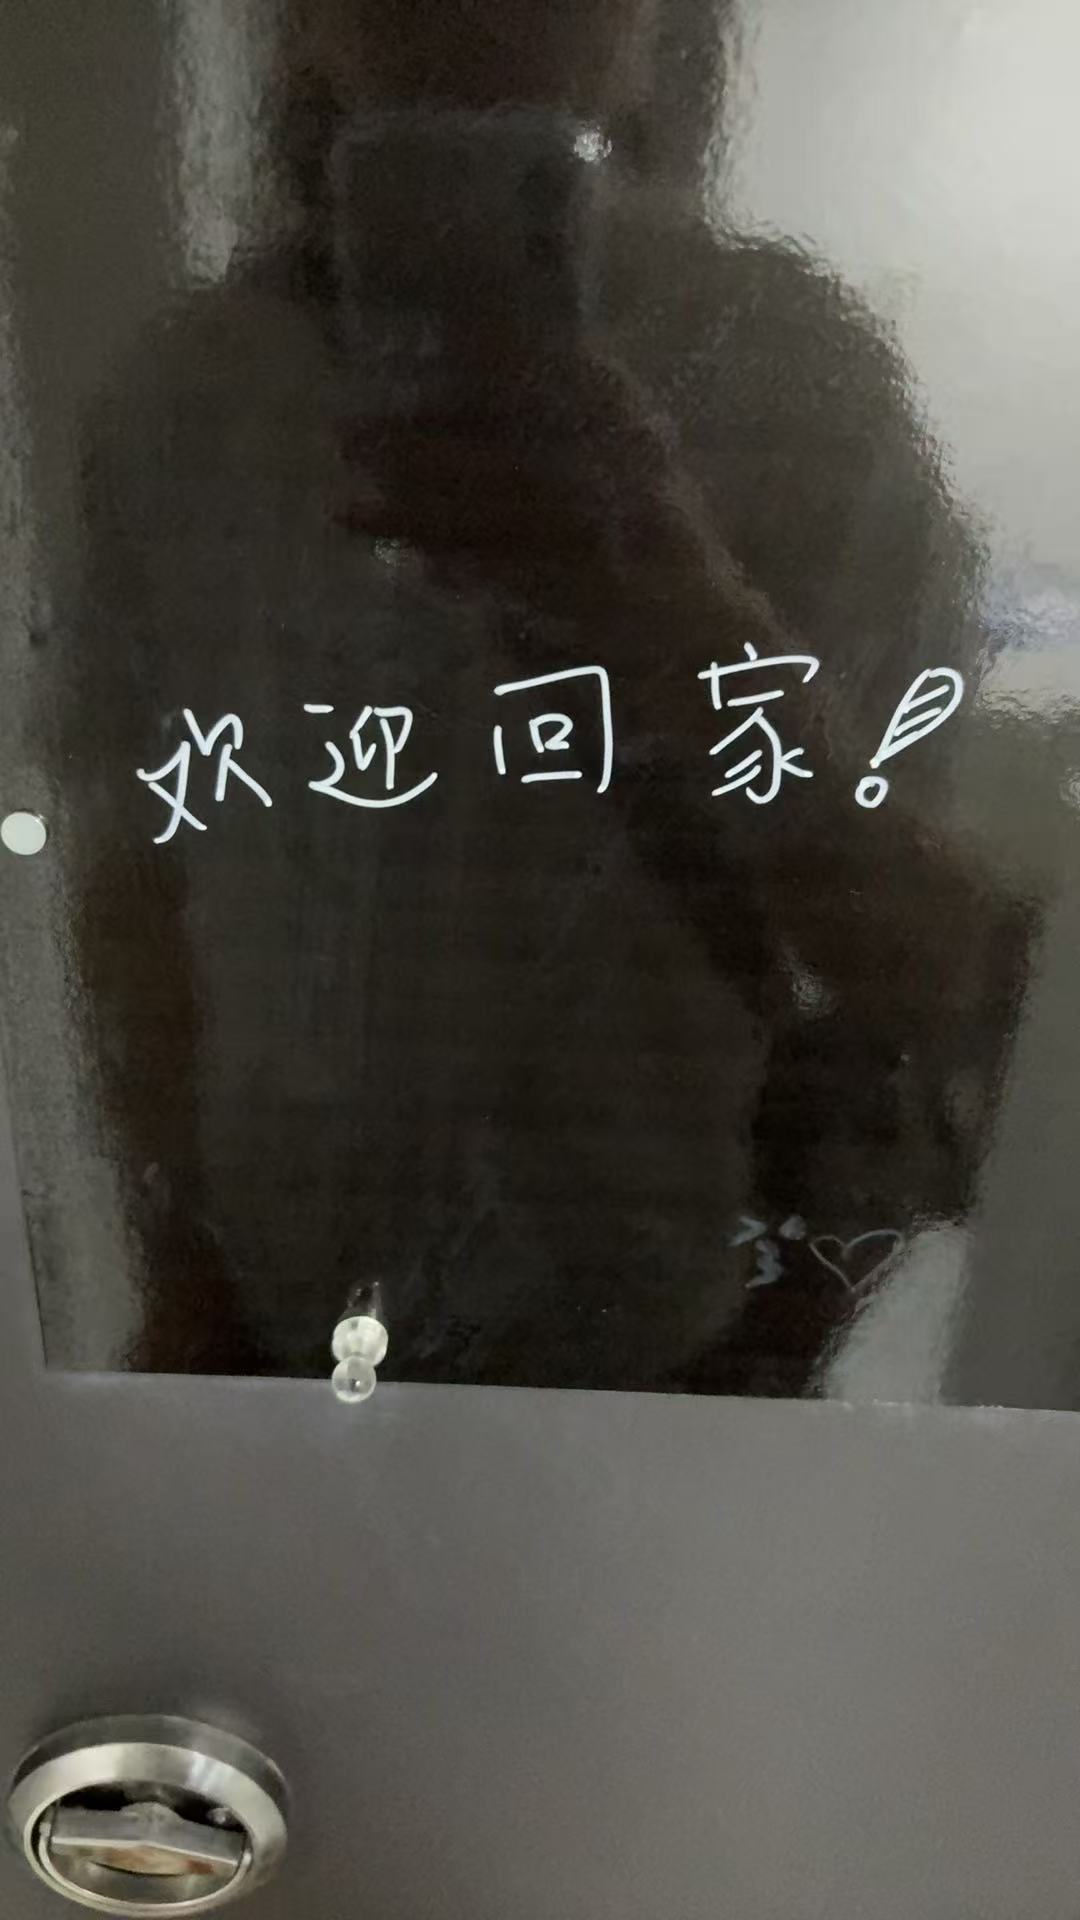 欢迎回家!